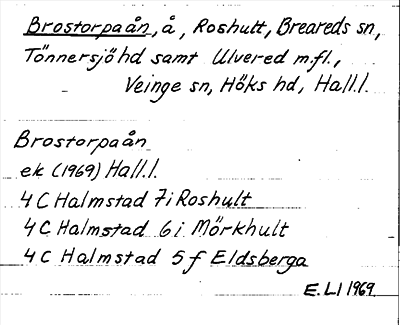 Brostorpaån, å, Roshult, Breareds sn,
Tönnersjö hd samt Ulvered m.fl.,
Veinge sn, Höks hd, Hall.l.
Brostorpaån
ek (1969) Hall.l.
4 C Halmstad 7i Roshult
4 C Halmstad 6 i Mörkhult
4 C Halmstad 5 f Eldsberga
E.LI 1969